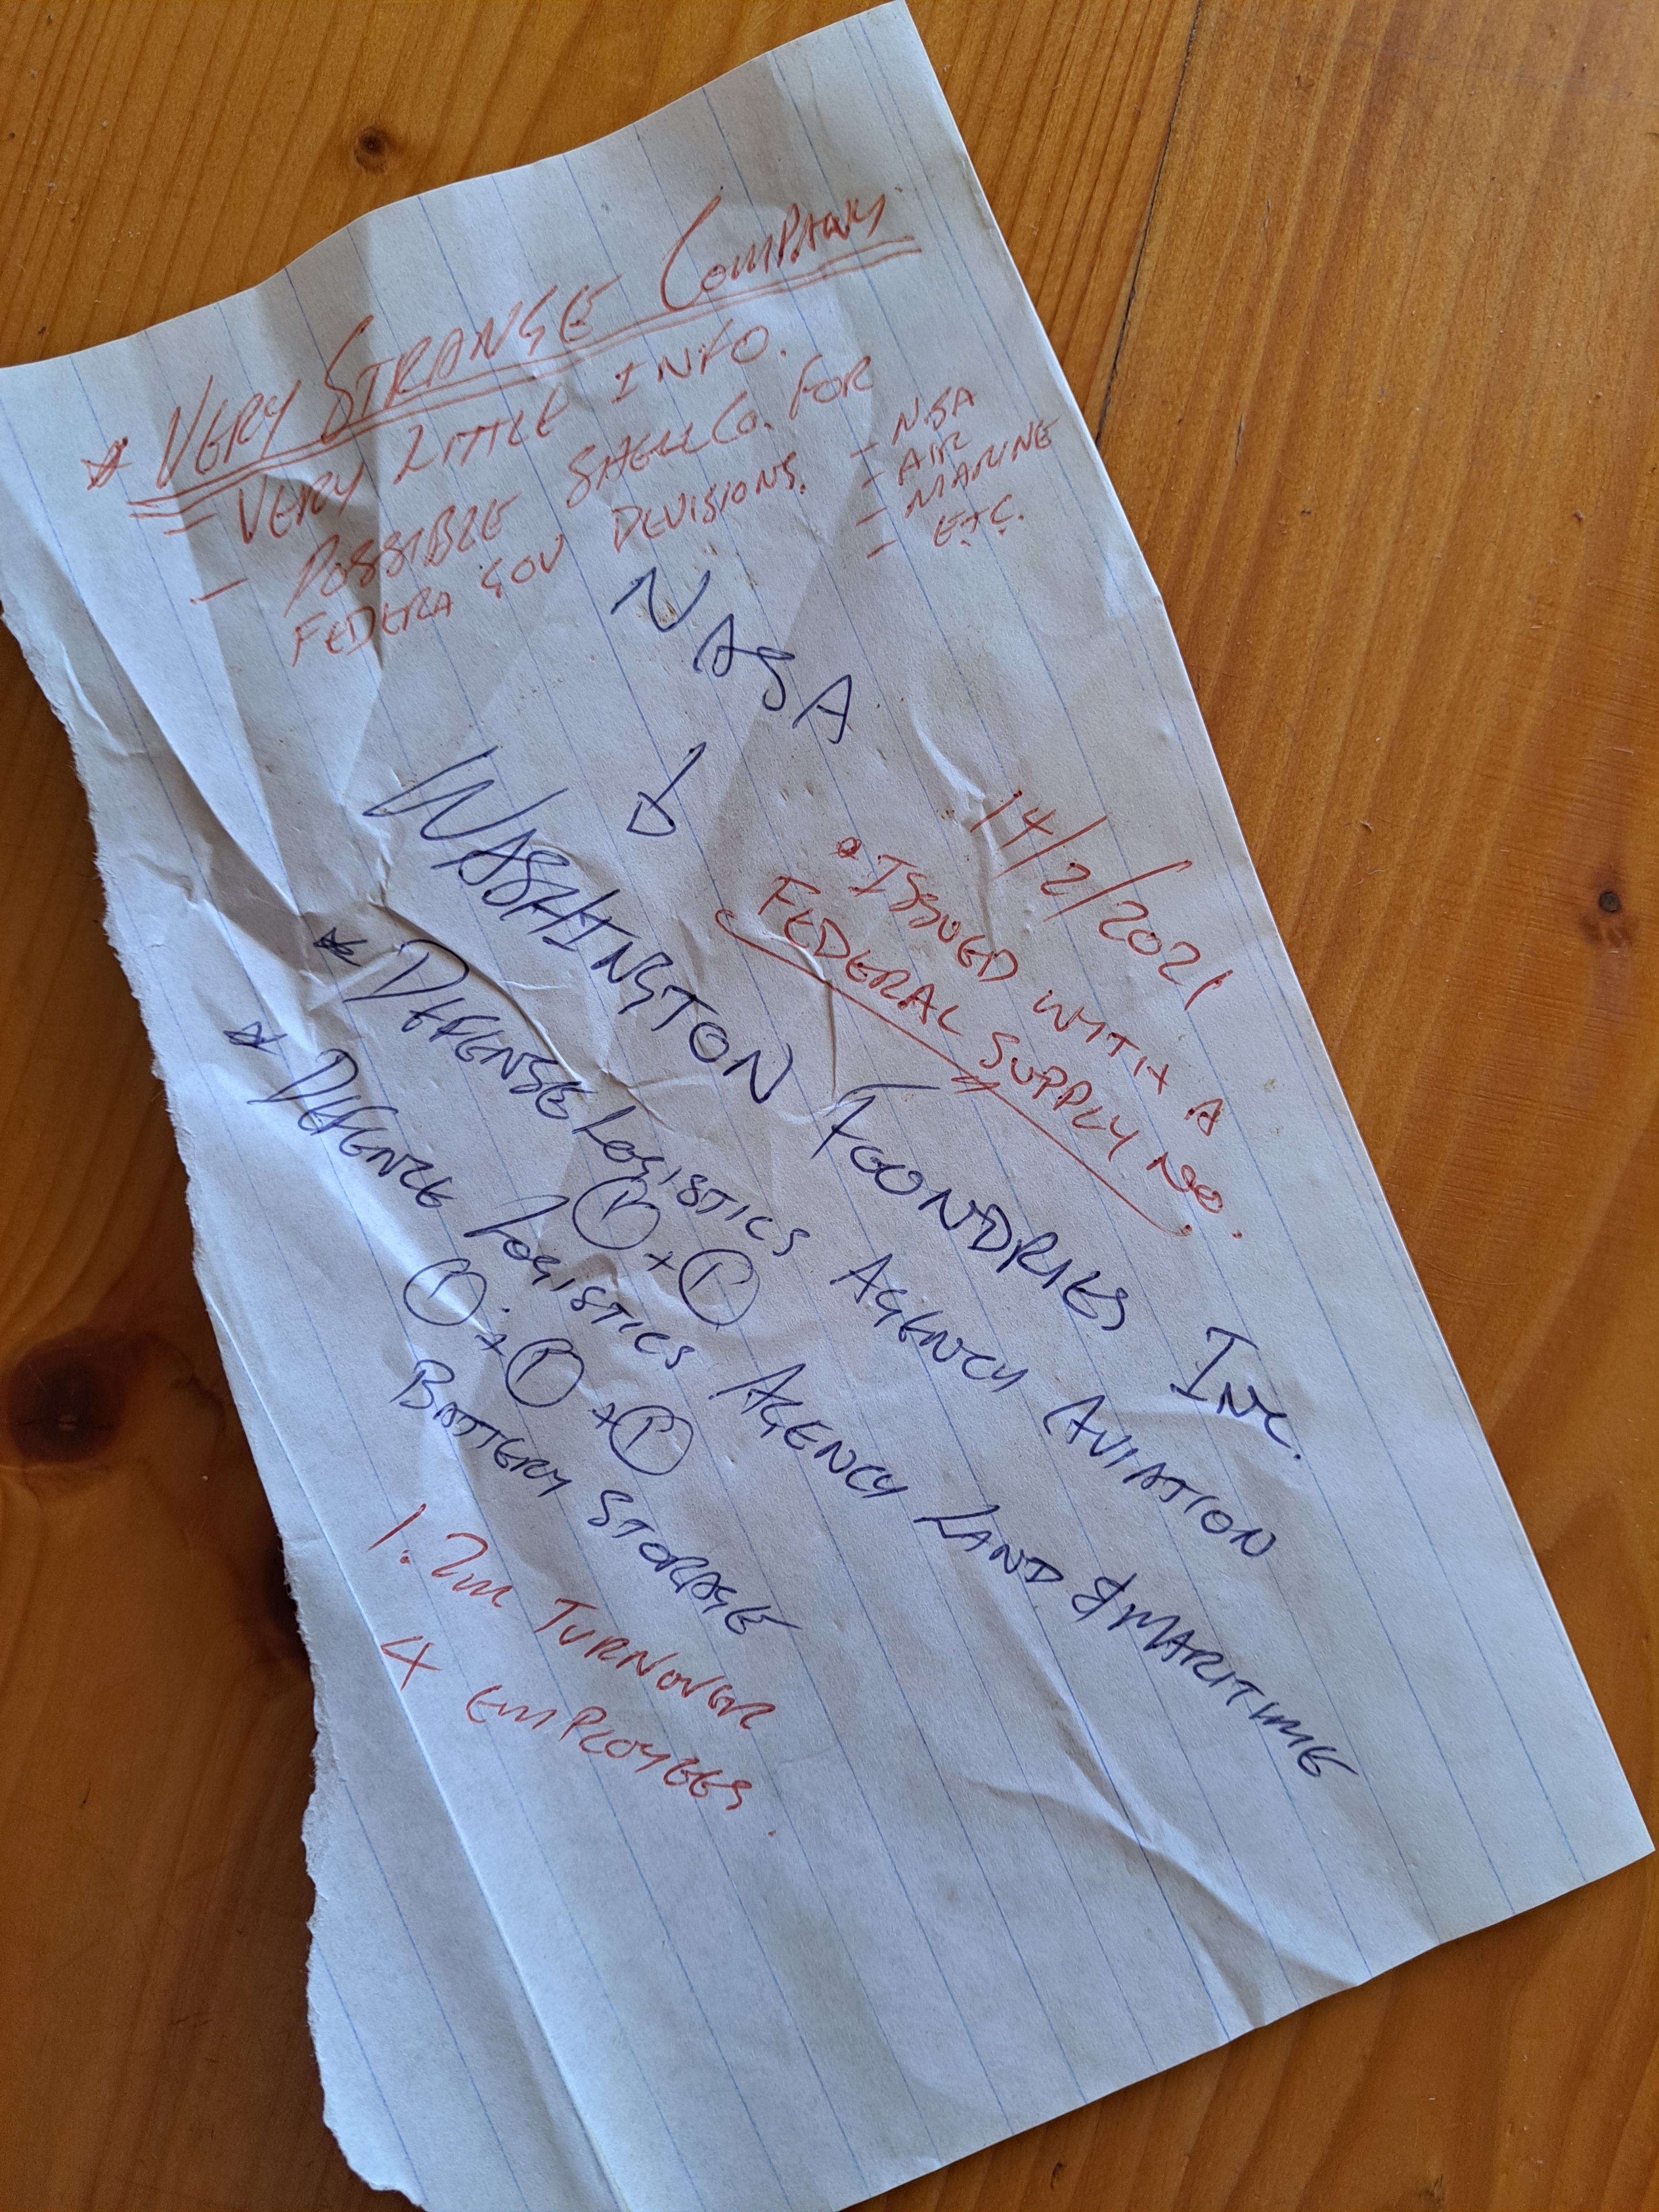 * VERY STRANGE COMPANY
- VERY LITTLE INFO.
- POSSIBLE SHELL CO. FOR
FEDERA GOV DEVISIONS.
- NSA
- AIR
- MARINE
ETC.
NASA
↓
14/2/2021
• ISSUED WITH A
FEDERAL SUPPLY NO.
WASHINGTON FOONDRIES INC.
* DEFENSE LOGISTICS AGENCY AVIATION
P + P
* DEFENZE LOGISTICS AGENCY LAND & MARITIME
P + P + P
BATTERY STORAGE
1.2m TURNOVER
4 EMPLOYEES.